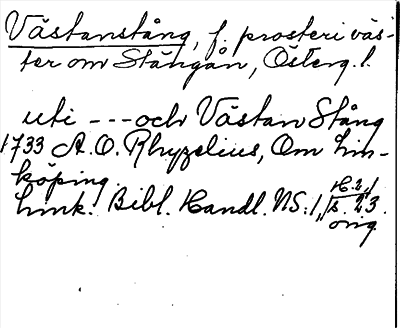 Västanstång, f. prosteri väs-
ter om Stångån, Österg. l.
uti --- och Västan Stång
1733 A. O. Rhyzelius, Om Lin-
köping
Link. Bibl. Handl. NS: 1,
H. 2,
s. 23.
orig.